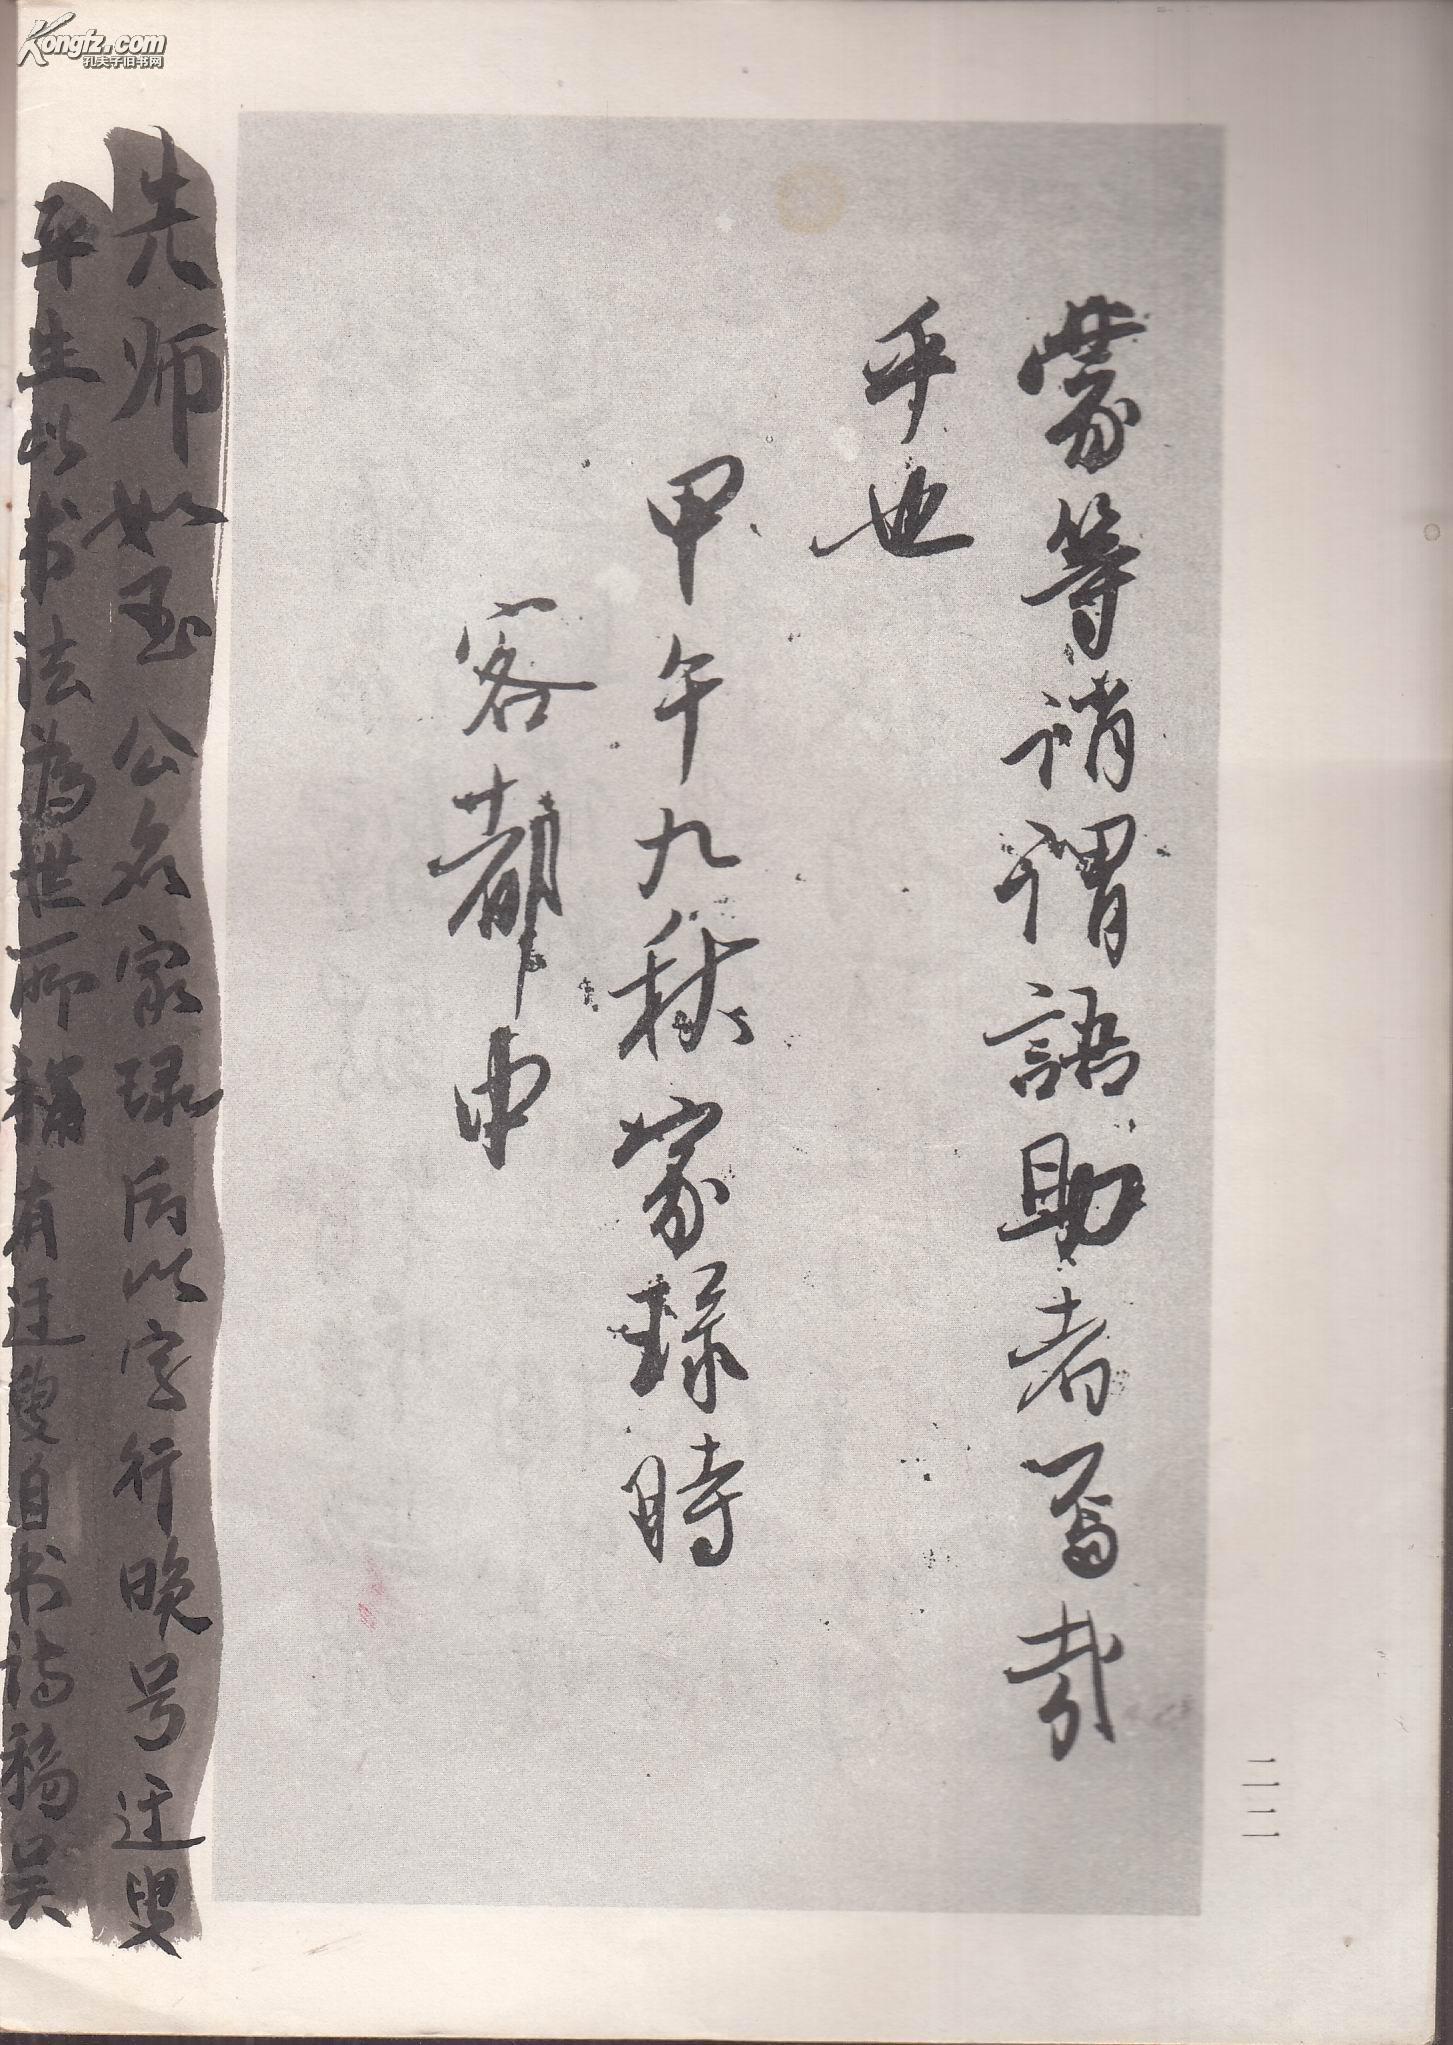 蒙等誚謂語助者焉哉
乎也
甲午九秋家琭時
客都中
二一二
先师如玉公名家琭后以字行晚号迂叟
平生以书法为世所称有迂叟自书诗稿吴
Kongfz.com
孔夫子旧书网